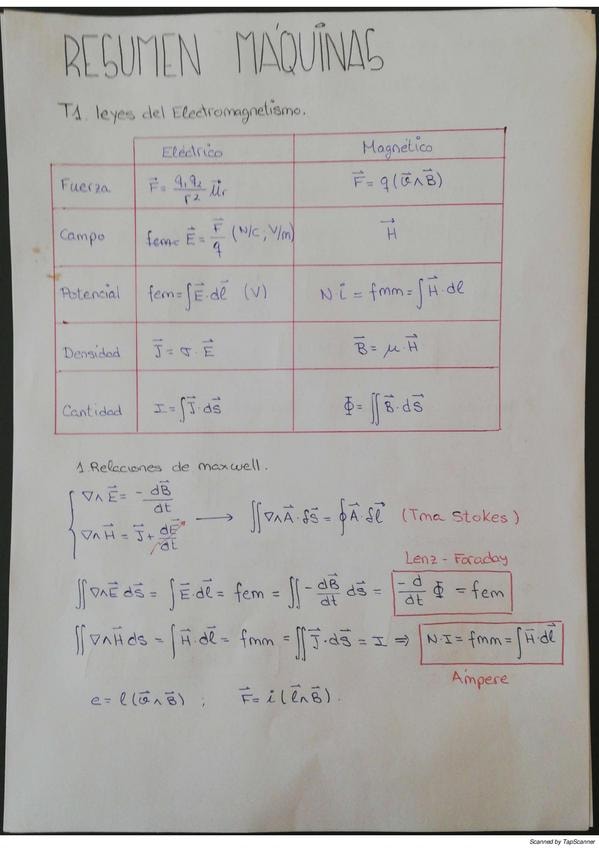 RESUMEN MÁQUINAS
T1. leyes del Electromagnetismo.
Eléctrico Magnético
Fuerza F⃗ = q₁q₂/r² μ⃗r F⃗ = q(v⃗∧B⃗)
Campo E⃗ = F⃗/q (N/C; V/m) H⃗
Potencial fem = ∫E⃗·dl⃗ (V) N i = fmm = ∫H⃗·dl
Densidad J⃗ = σ·E⃗ B⃗ = μ·H⃗
Cantidad I = ∫J⃗·ds⃗ Φ = ∬B⃗·dS⃗
1. Relaciones de maxwell.
∇∧E⃗ = -dB⃗/dt
∇∧H⃗ = J⃗ + dE⃗/dt → ∬∇∧A⃗·ds⃗ = ∮A⃗·dl⃗ (Tma Stokes)
Lenz - Faraday
∬∇∧E⃗ ds⃗ = ∫E⃗·dl⃗ = fem = ∬-dB⃗/dt ds⃗ = -d/dt Φ = fem
∬∇∧H⃗ ds = ∫H⃗·dl⃗ = fmm = ∬J⃗·ds⃗ = I ⇒ N·I = fmm = ∫H⃗·dl⃗
Ampere
e = l(v⃗∧B⃗) ; F⃗ = i(l⃗∧B⃗).
Scanned by TapScanner